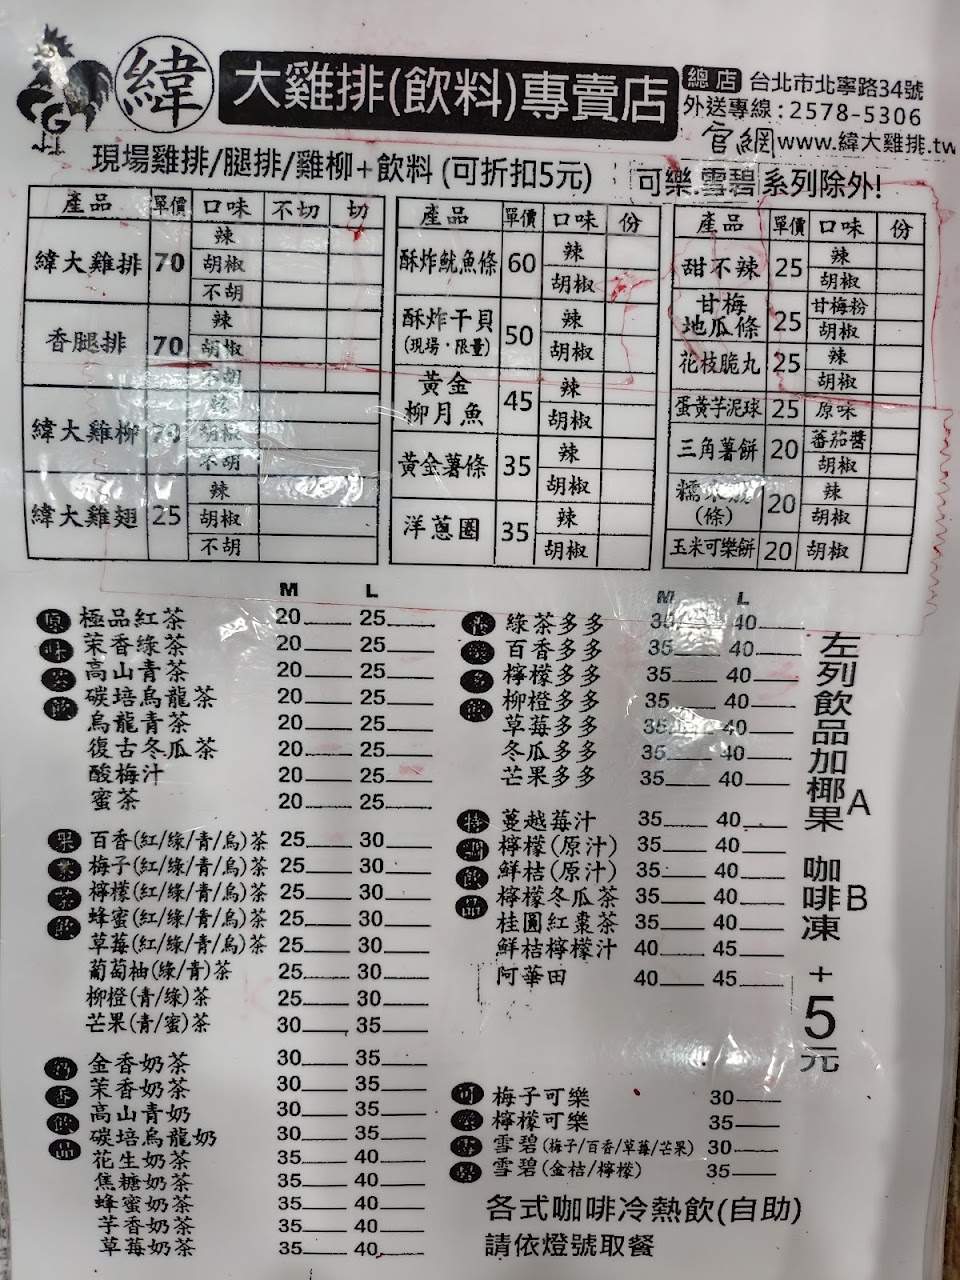 緯
大雞排(飲料)專賣店
總店 台北市北寧路34號
外送專線:2578-5306
官網www.緯大雞排.tw
現場雞排/腿排/雞柳+飲料 (可折扣5元) 可樂.雪碧系列除外!
產品 單價 口味 不切 切
緯大雞排 70 辣
胡椒
不胡
香腿排 70 辣
胡椒
不胡
緯大雞柳 70 辣
胡椒
不胡
緯大雞翅 25 辣
胡椒
不胡
產品 單價 口味 份
酥炸魷魚條 60 辣
胡椒
酥炸干貝 (現場·限量) 50 辣
胡椒
黃金柳月魚 45 辣
胡椒
黃金薯條 35 辣
胡椒
洋蔥圈 35 辣
胡椒
產品 單價 口味 份
甜不辣 25 辣
胡椒
甘梅地瓜條 25 甘梅粉
胡椒
花枝脆丸 25 辣
胡椒
蛋黃芋泥球 25 原味
三角薯餅 20 蕃茄醬
胡椒
糯米(條) 20 辣
胡椒
玉米可樂餅 20 胡椒
M L
原味茶飲
極品紅茶 20 25
茉香綠茶 20 25
高山青茶 20 25
碳培烏龍茶 20 25
烏龍青茶 20 25
復古冬瓜茶 20 25
酸梅汁 20 25
蜜茶 20 25
果茶飲
百香(紅/綠/青/烏)茶 25 30
梅子(紅/綠/青/烏)茶 25 30
檸檬(紅/綠/青/烏)茶 25 30
蜂蜜(紅/綠/青/烏)茶 25 30
草莓(紅/綠/青/烏)茶 25 30
葡萄柚(綠/青)茶 25 30
柳橙(青/綠)茶 25 30
芒果(青/蜜)茶 30 35
香飲品
金香奶茶 30 35
茉香奶茶 30 35
高山青奶 30 35
碳培烏龍奶 30 35
花生奶茶 35 40
焦糖奶茶 35 40
蜂蜜奶茶 35 40
芋香奶茶 35 40
草莓奶茶 35 40
M L
多飲
綠茶多多 35 40
百香多多 35 40
檸檬多多 35 40
柳橙多多 35 40
草莓多多 35 40
冬瓜多多 35 40
芒果多多 35 40
特調飲品
蔓越莓汁 35 40
檸檬(原汁) 35 40
鮮桔(原汁) 35 40
檸檬冬瓜茶 35 40
桂圓紅棗茶 35 40
鮮桔檸檬汁 40 45
阿華田 40 45
左列飲品加椰果A 咖啡凍B +5元
可樂雪碧
梅子可樂 30
檸檬可樂 35
雪碧(梅子/百香/草莓/芒果) 30
雪碧(金桔/檸檬) 35
各式咖啡冷熱飲(自助)
請依燈號取餐